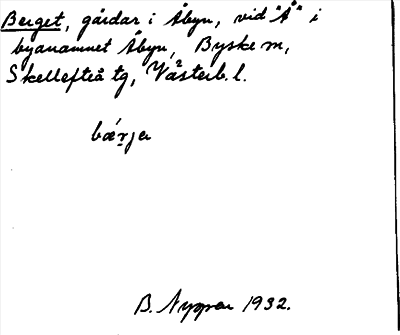 Berget, gårdar i Åbyn, vid "Å" i
byanamnet Åbyn, Byske m,
Skellefteå tg, Västerb. l.
bǽrja
B. Nyman 1932.